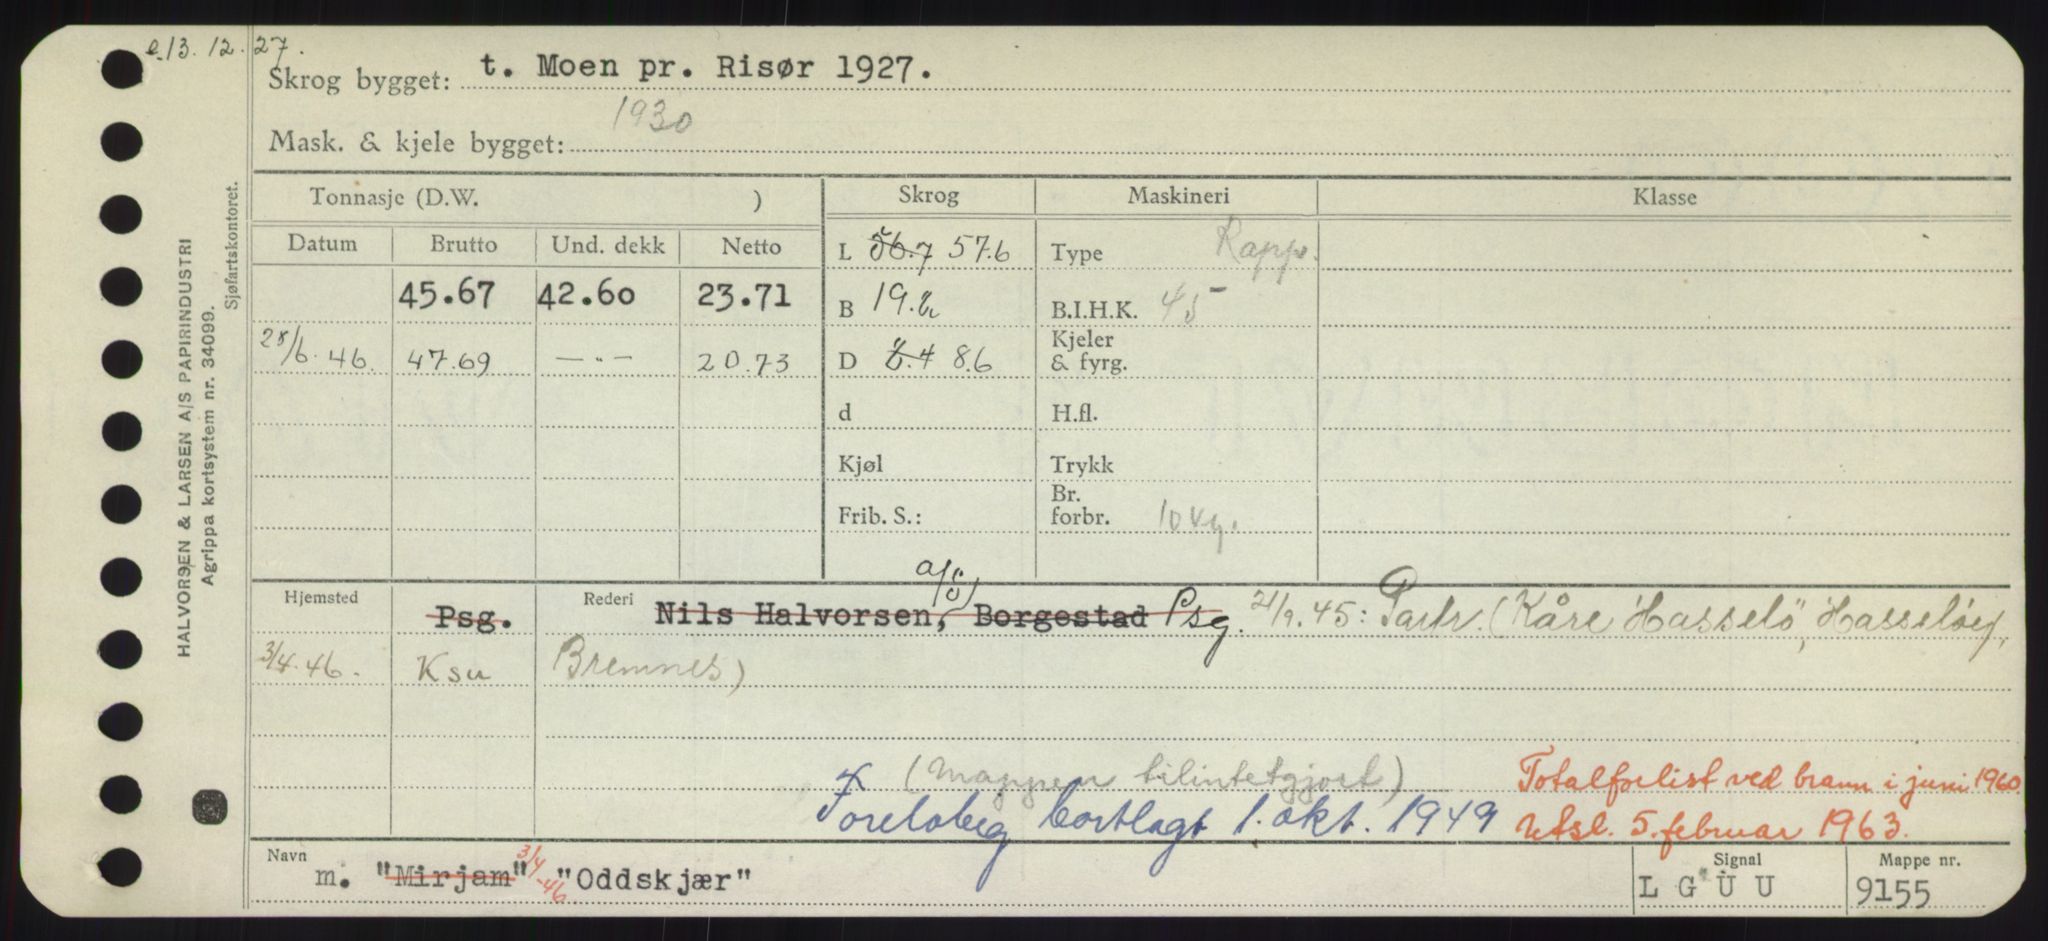 e.13.12.27.
Skrog bygget: t. Moen pr. Risør 1927.
Mask. & kjele bygget: 1930
Tonnasje (D.W. )
Skrog
Maskineri
Klasse
Datum Brutto Und. dekk Netto
45.67 42.60 23.71
28/6.46. 47.69 —"— 20.73
L 56.7 57.6
B 19.2
D 8.4 8.6
d
Kjøl
Frib. S.:
Type Rapp.
B.I.H.K. 45
Kjeler
& fyrg.
H.fl.
Trykk
Br.
forbr. 10 kg.
Hjemsted Psg. Rederi Nils Halvorsen, Borgestad Psg. 21/9.45: Partr. (Kåre Hasselö, Hasseløy,
3/4.46. Ksu Bremnes)
(Mappen tilintetgjort)
Foreløbig bortlagt 1. okt. 1949
Totalforlist ved brann i juni 1960
Utsl. 5. februar 1963.
Navn m. "Mirjam" 3/4-46 "Oddskjær"
Signal
L G U U
Mappe nr.
9155
HALVORSEN & LARSEN A/S PAPIRINDUSTRI
Agrippa kortsystem nr. 34099.
Sjøfartskontoret.